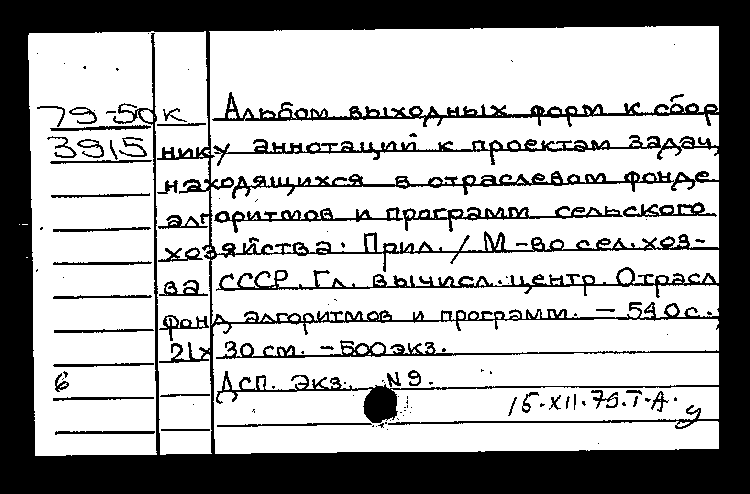 79-50к Альбом выходных форм к сбор
3915 нику аннотаций к проектам задач,
находящихся в отраслевом фонде
алгоритмов и программ сельского
хозяйства. Прил. / М-во сел. хоз-
ва СССР. Гл. вычисл. центр. Отрасл
фонд алгоритмов и программ. – 540 с.;
21х30 см. – 500 экз.
6 Дсп. Экз. N9.
15.XII.79.Т.А.